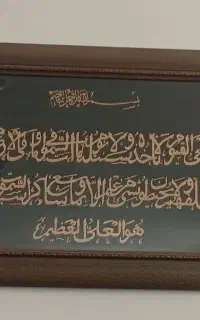 بسم الله الرحمن الرحيم
القيوم لا تأخذه سنة ولا نوم له ما في السموات وما في
خلفهم ولا يحيطون بشيء من علمه الا بما شاء وسع كرسيه
هو العلي العظيم